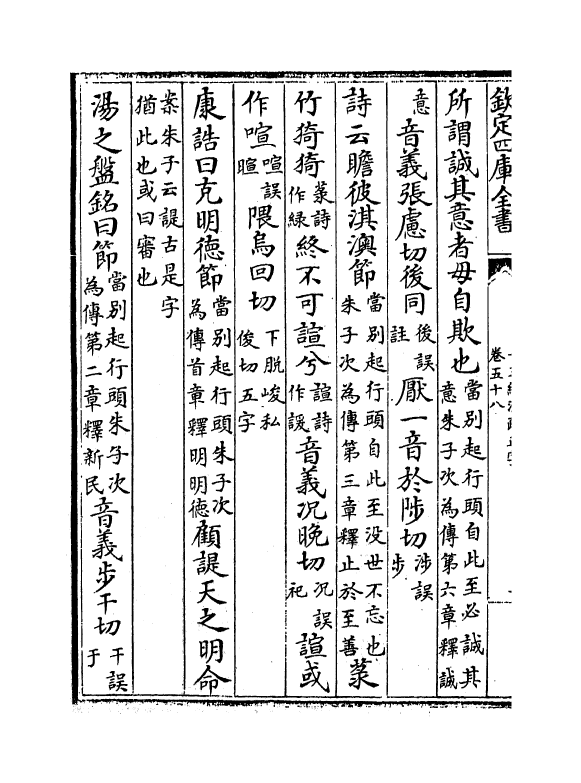 欽定四庫全書
卷五十八
所謂誠其意者毋自欺也當別起行頭自此至必誠其意朱子次為傳第六章釋誠
意音義張慮切後同後誤註厭一音於陟切涉誤步
詩云瞻彼淇澳節當別起行頭自此至没世不忘也朱子次為傳第三章釋止於至善菉
竹猗猗菉詩作緑終不可諠兮諠詩作諼音義况晚切况誤祀諠或
作喧喧誤暄隈烏回切下脱峻私俊切五字
康誥曰克明德節當別起行頭朱子次為傳首章釋明明德顧諟天之明命
案朱子云諟古是字猶此也或曰審也
湯之盤銘曰節當別起行頭朱子次為傳第二章釋新民音義步干切干誤于